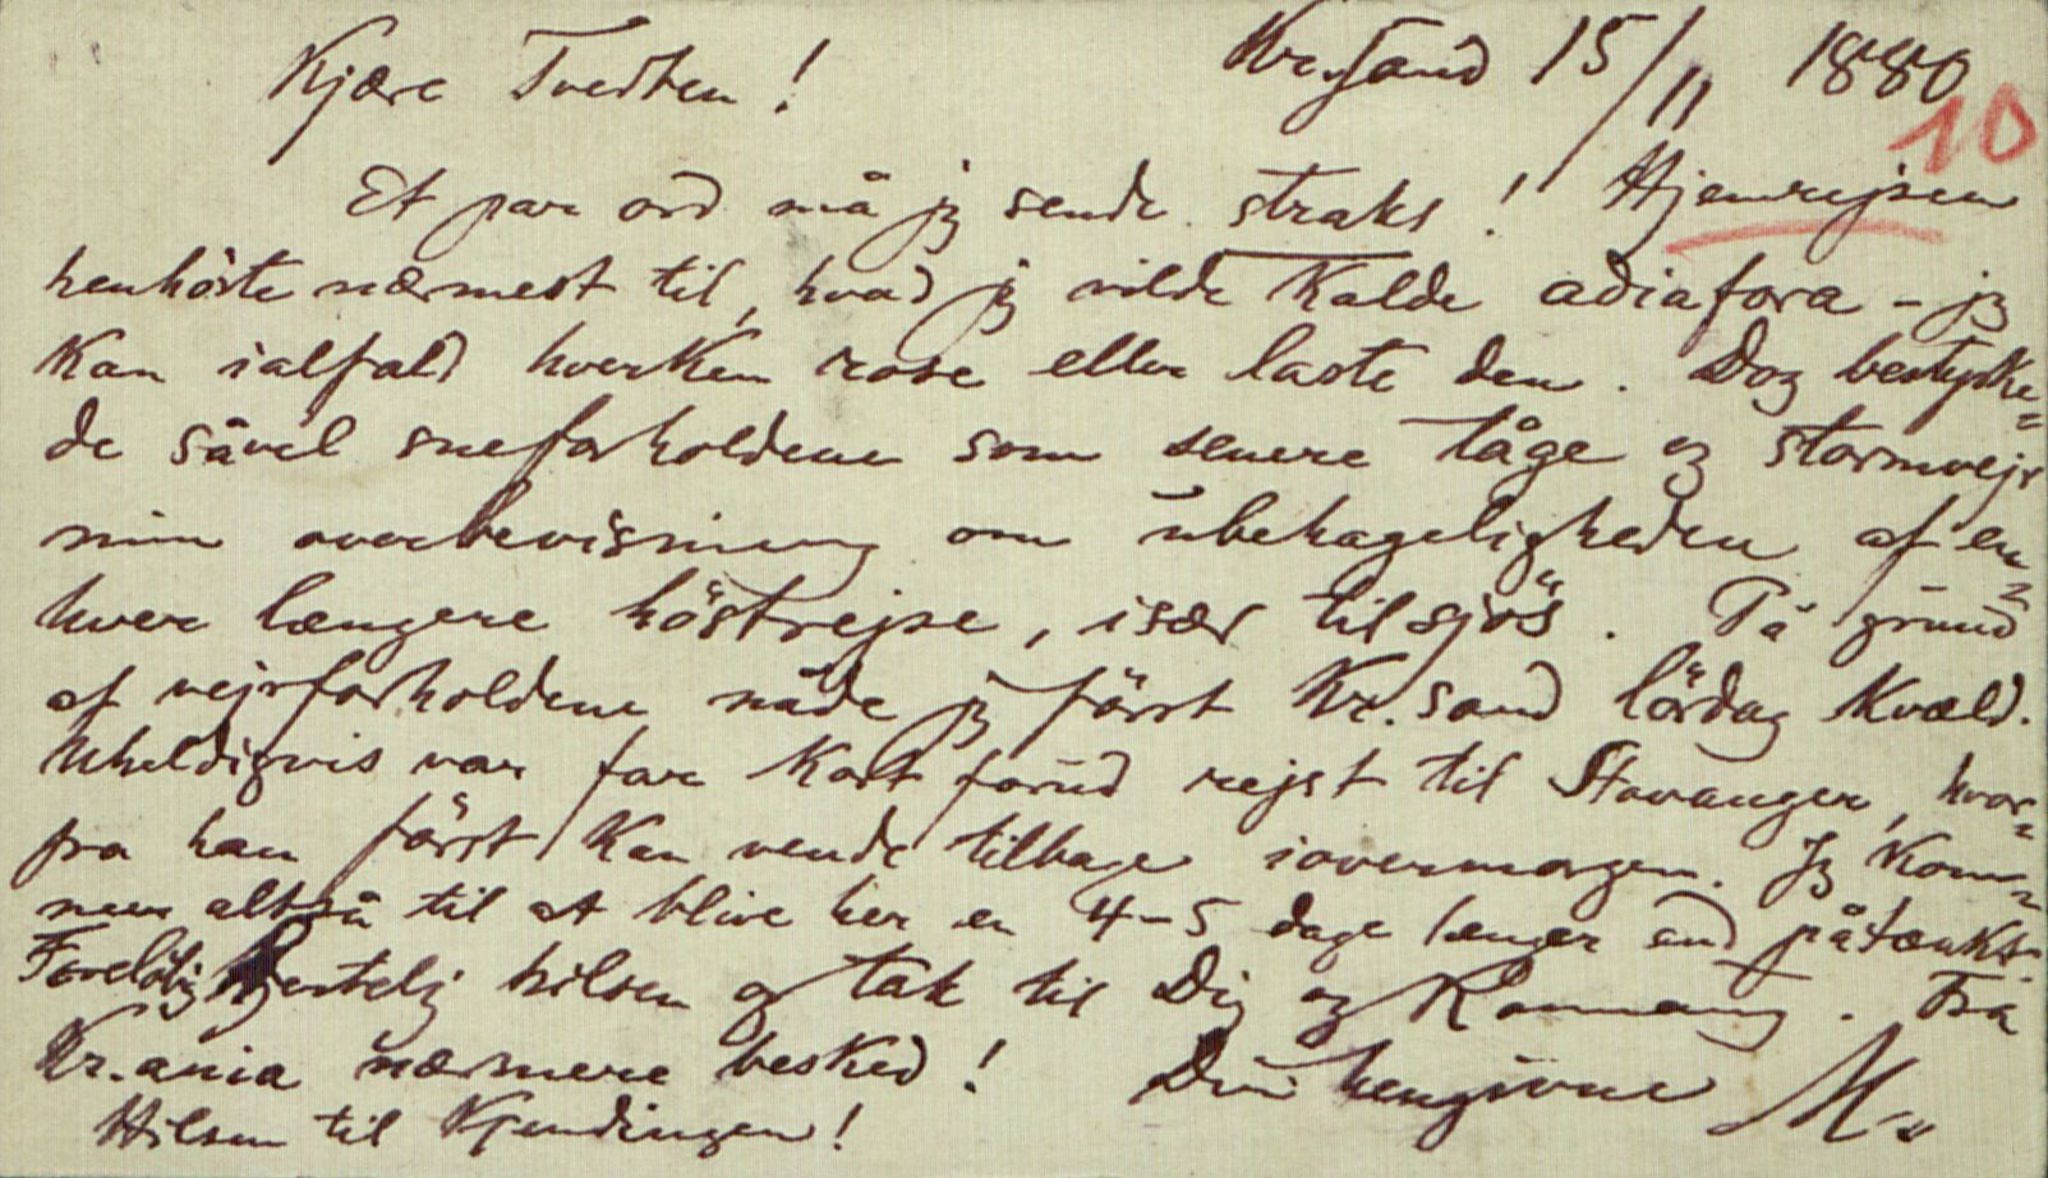 Kr.sand 15/11 1880
10
Kjære Tvedten!
Et par ord må jg sende straks! Hjemrejsen
henhörte nærmest til, hvad jg vilde kalde adiafora - jg
kan ialfald hverken rose eller laste den. Dog bestyrke=
de såvel sneforholdene som senere tåge og stormvejr
min overbevisning om ubehageligheden af en=
hver længere höstrejse, især tilsjös. På grund
af vejrforholdene nåde jg först Kr.sand lördag kvæld.
Uheldigvis var far kort forud rejst til Stavanger, hvor=
fra han först kan vende tilbage iovermorgen. Jg kom=
mer altså til at blive her en 4-5 dage længer end påtænkt.
Forelöbig hjertelig hilsen og tak til Dig og Romang. Fra
Kr.ania nærmere besked! Din hengivne M.
Hilsen til Kjendingen!